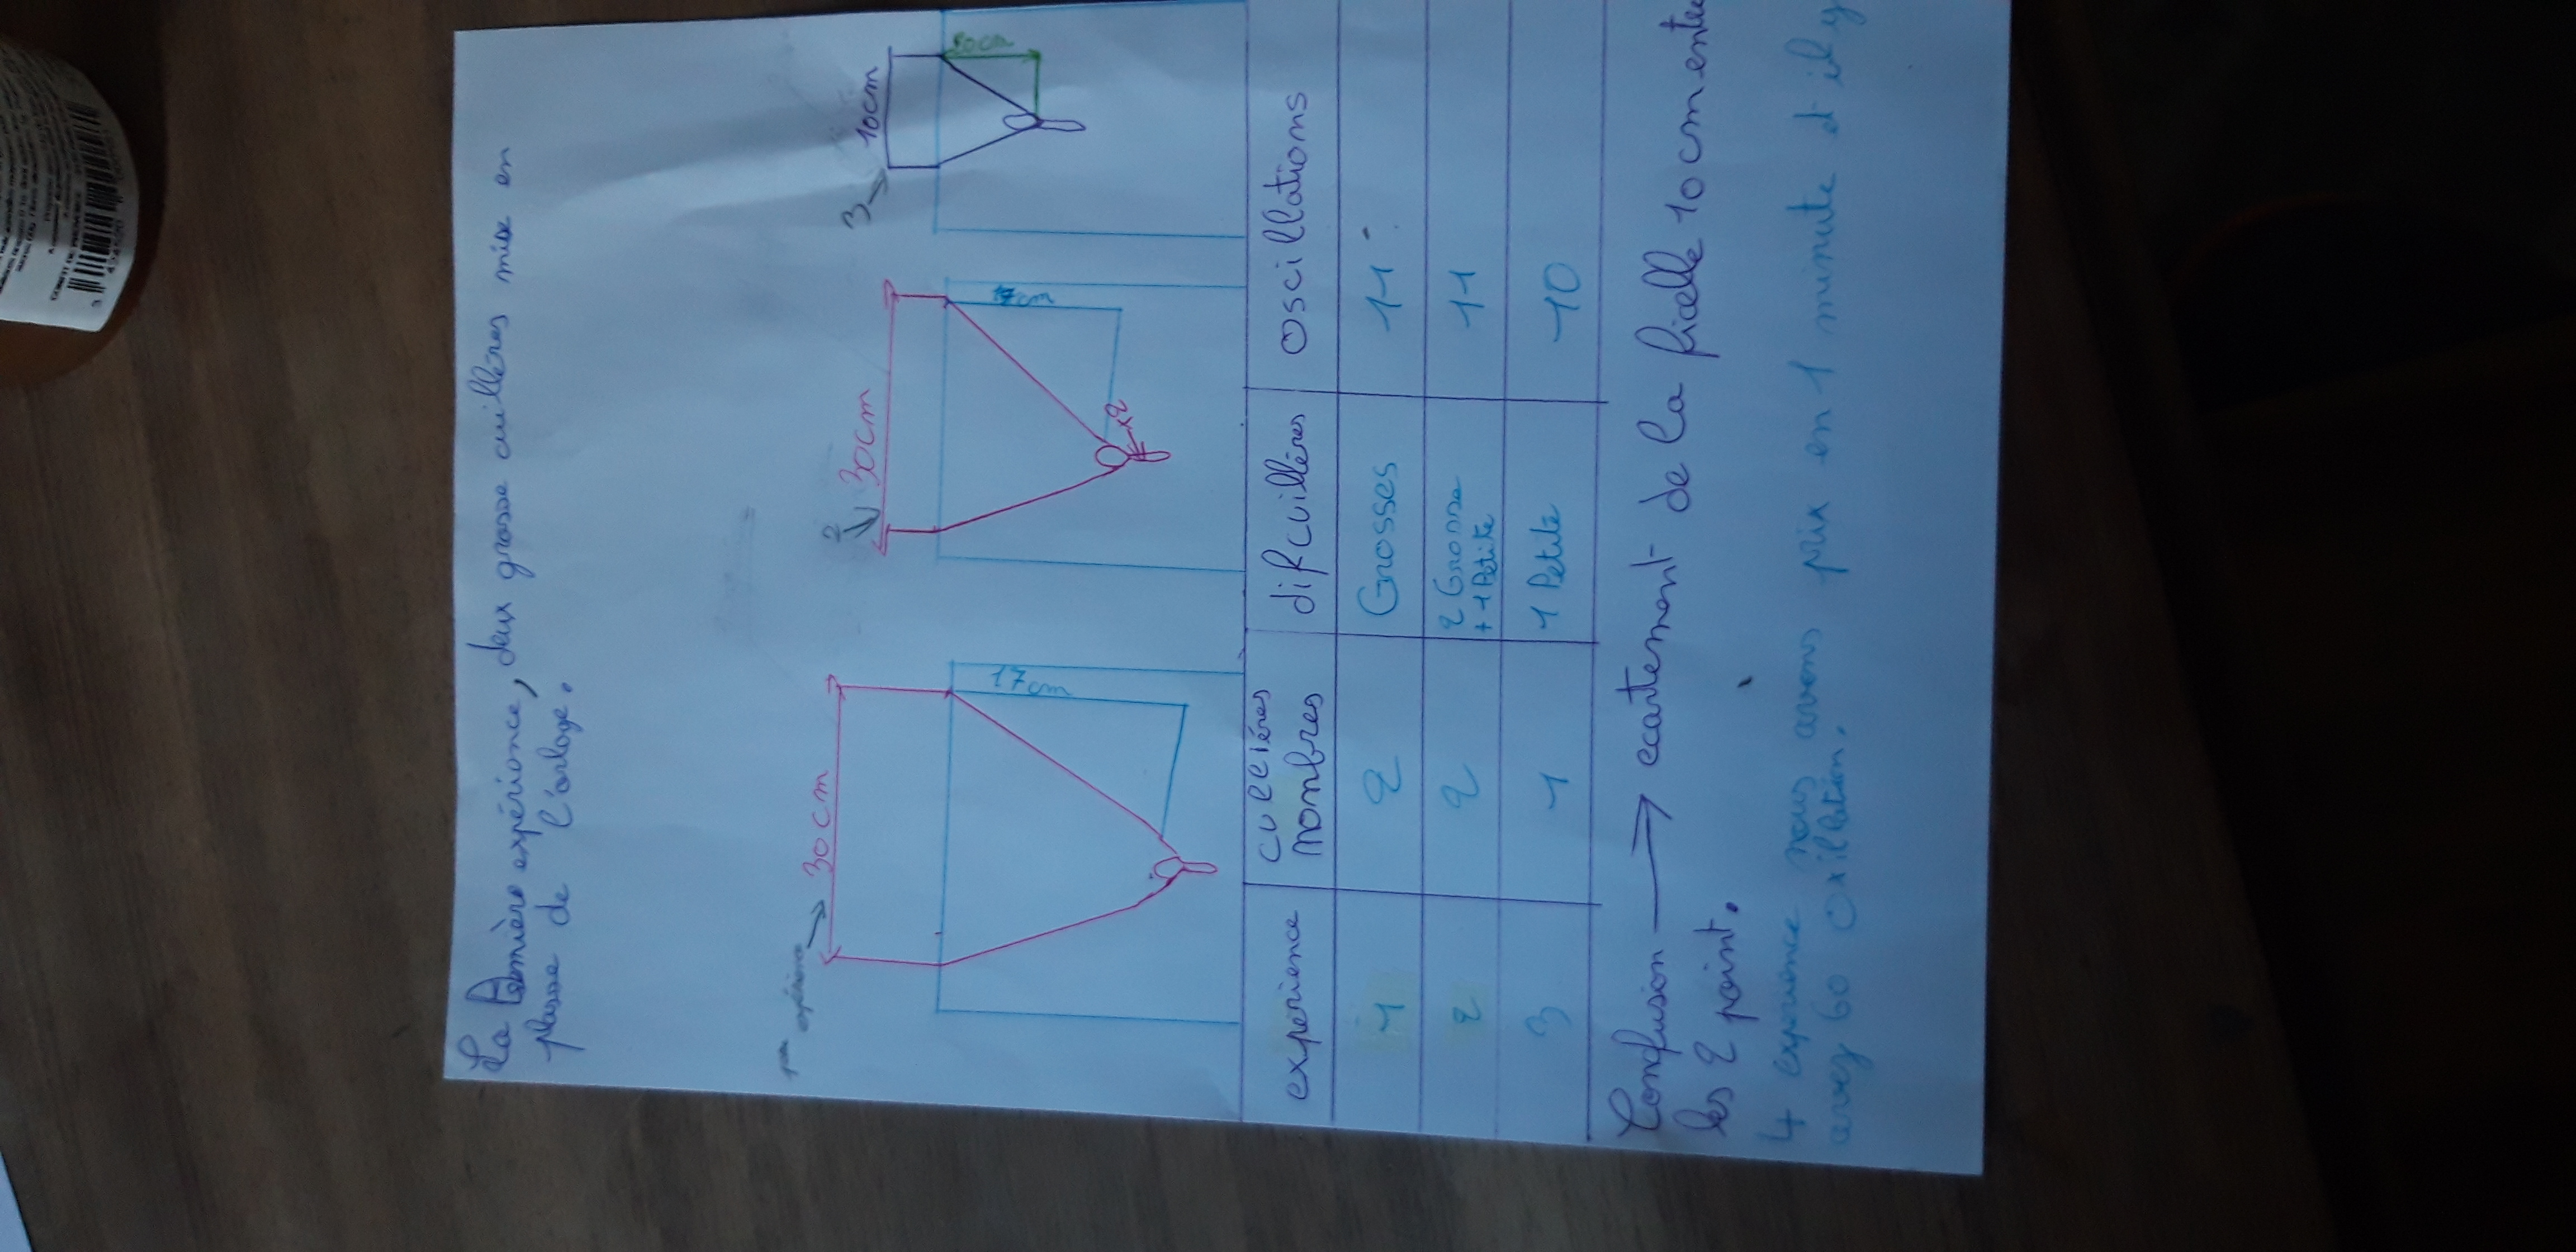 La Première expérience, deux grosse cuillères mise en
plasse de l'orloge.
30cm
17cm
2
30cm
x2
3
10cm
experience
cuelières
nombres
dif cuillères
oscillations
1
2
Grosses
11
2
2
2 Grosse
+ 1 Petite
11
3
1
1 Petite
10
Conflusion → ecartement de la ficelle 10cm entre
les 2 point.
4 experience nous avons prix en 1 minute et il y
avez 60 oxillation.